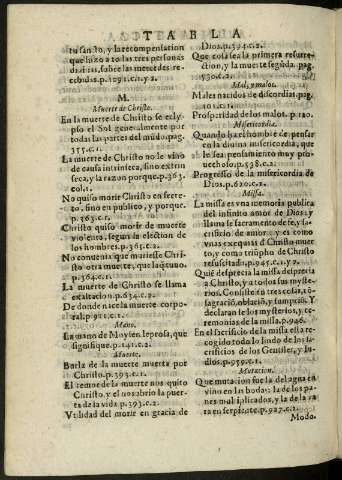 TABLA
tu sancto, y la recompensation
que hizo a todas tres personas
diuinas, sobre las mercedes re-
cebidas. p.1091.c.1.y 2.
M.
Muerte de Christo.
En la muerte de Christo se eclyp
so el Sol generalmente por
todas las partes del mũdo. pag.
355.c.1.
La muerte de Christo no le vino
de causa intrinseca, sino extrin
seca, y la razon porque. p.363.
col.1.
No quiso morir Christo en secre
to, sino en publico, y porque.
p.363.c.1.
Christo quiso morir de muerte
violenta, segun la election de
los hombres. p.363.c.2.
No conuenia que muriesse Chri-
sto otra muerte, que la q̃ tuuo.
p.364.c.1.
La muerte de Christo se llama
exaltacion. p.634.c.2.
De donde nace la muerte corpo-
ral. p.921.c.1.
Mano.
La mano de Moysen leprosa, que
significa. p.141.c.2.
Muerte.
Burla de la muerte muerta por
Christo. p.393.c.1.
El temor de la muerte nos quito
Christo, y el nos abrio la puer-
ta de la vida. p.393.c.2.
Vtilidad del morir en gracia de
Dios. p.394.c.2.
Que cosa sea la primera resurre-
ction, y la muerte segũda. pag.
730.c.2.
Mal, y malos.
Males nacidos de discordias. pag.
10.c.1.
Prosparidad de los malos. p.120.
Misericordia.
Quando ha el hombre de pensar
en la diuina misericordia, que
le sea pensamiento muy pro-
uechoso. p.538.c.2.
Progresso de la misericordia de
Dios. p.620.c.2.
Missa.
La missa es vna memoria publica
del infinito amor de Dios: y
llama se sacramento de fe, y sa-
crificio de amor: y es como
vnas exequias d̃ Christo muer
to, y como triũpho de Christo
resuscitado. p.945.c.1. y 2.
Quiẽ desprecia la missa desprecia
a Christo, y a todos sus myste-
rios. Consiste en tres cosas, cõ-
sagraciõ, oblaciõ, y sumpciõ. Y
declaran se los mysterios, y ce-
remonias de la missa. p.946.
En el sacrificio de la missa esta re-
cogido todo lo lindo de los sa-
crificios de los Gentiles, y Iu-
dios. p.959.c.1.
Mutacion.
Que mutacion fue la del agua en
vino en las bodas: la de los pa-
nes multiplicados, y la de la va
ra en serpiente. p.927.c.2.
Modo.